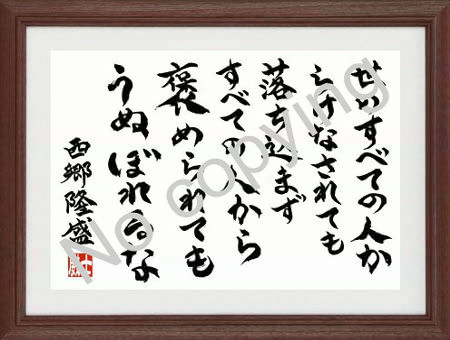 すべての人か
らけなされても
落ち込まず
すべての人から
褒められても
うぬぼれるな
西郷隆盛
No copying